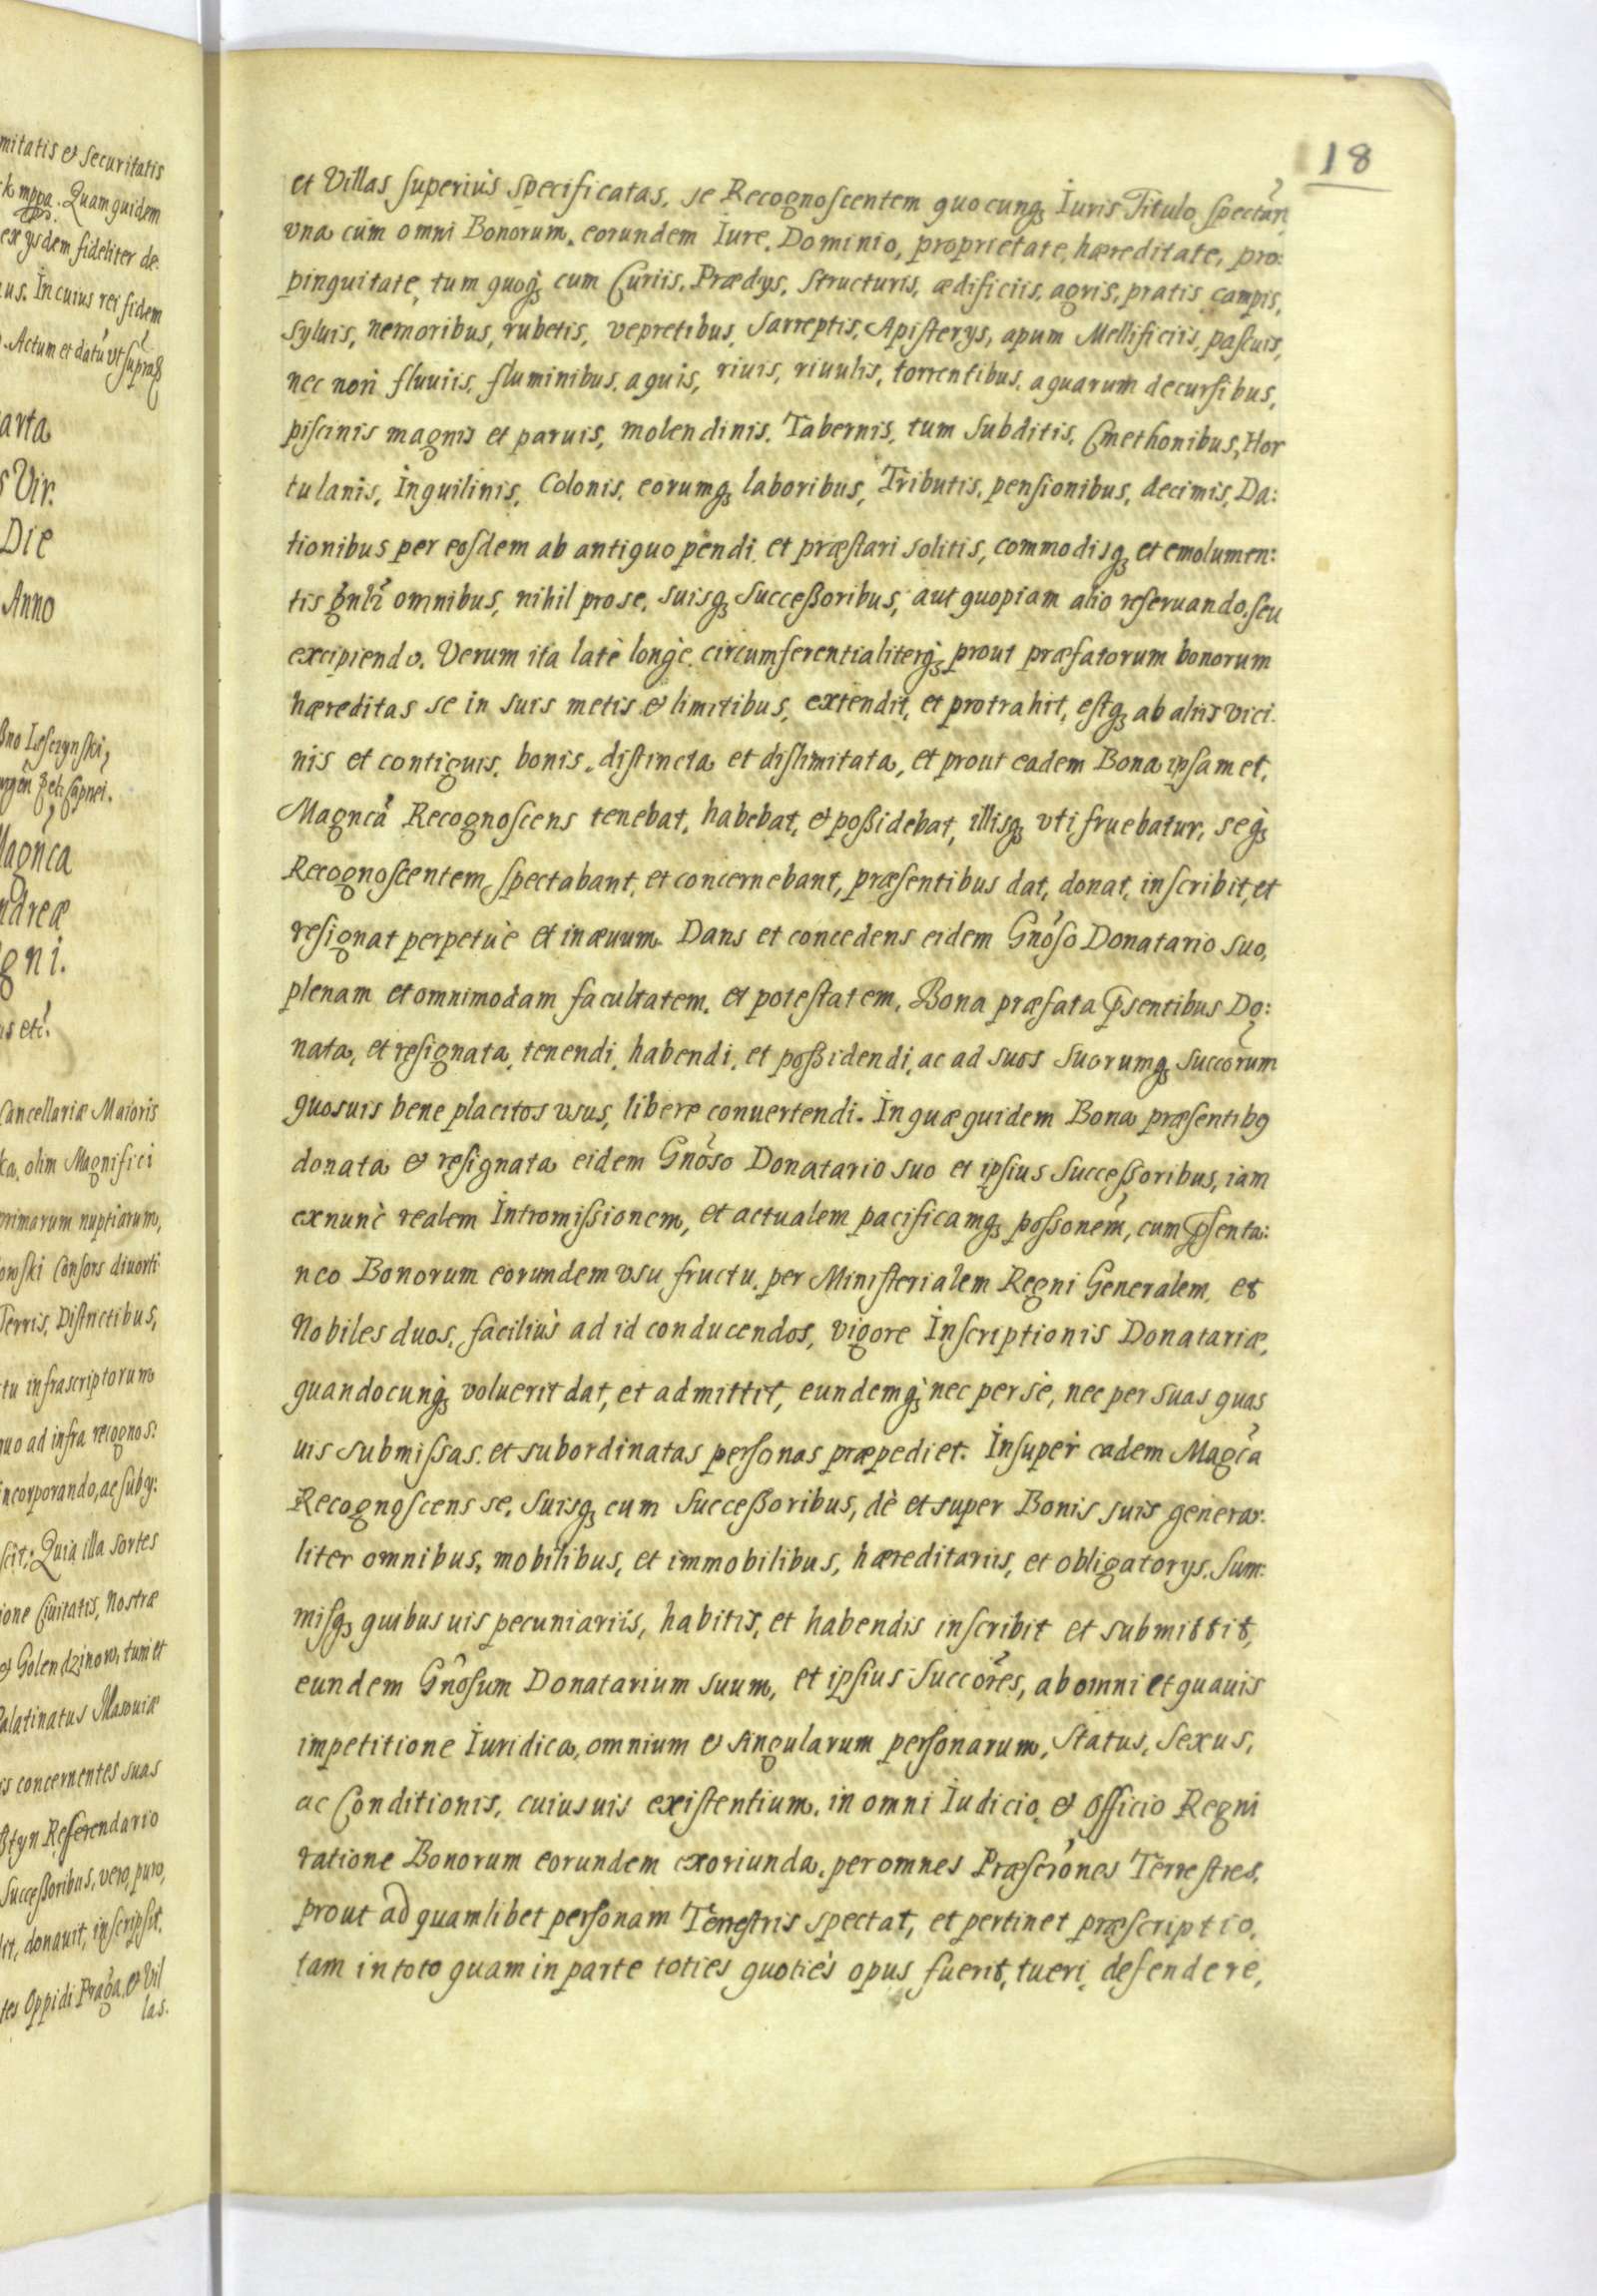 mitatis & securitatis
k mppa. Quamquidem
ex ysdem fideliter de:
us. In cuius rei fidem
. Actum et datũ vt supra
arta
s Vir.
Die
Anno
Magn̑ca
ndreæ
gni.
us etc̑.
Cancellariæ Maioris
ka, olim Magnifici
primarum nuptiarum,
owski Consors diuorti
Terris, Districtibus,
tu infrascriptorum
quo ad infra recognos:
incorporando, ac subij:
scit: Quia illa sortes
ione Ciuitatis, nostræ
& Golendzinow, tum et
Palatinatus Masouiæ
is concernentes suas
ßtyn Referendario
Successoribus, vero, puro,
it, donauit, inscripsit.
tes Oppidi Praga, & Vil
las.
18
et Villas superiùs specificatas, se Recognoscentem quocunq; Iuris Titulo spectan̑
vna cum omni Bonorum, eorundem Iure, Dominio, proprietate, hæreditate, pro:
pinquitate, tum quoq; cum Curiis, Prædijs, Structuris, ædificiis, agris, pratis campis,
syluis, nemoribus, rubetis, vepretibus, Sarreptis, Apisterijs, apum Mellificiis, pascuis,
nec non fluuiis, fluminibus, aquis, riuis, riuulis, torrentibus, aquarum decursibus,
piscinis magnis et paruis, molendinis, Tabernis, tum Subditis, Cmethonibus, Hor
tulanis, Inquilinis, Colonis, eorumq; laboribus, Tributis, pensionibus, decimis, Da:
tionibus per eosdem ab antiquo pendi et præstari solitis, commodisq; et emolumen:
tis gn̑lȓ omnibus, nihil pro se, suisq; Successoribus, aut quopiam alio reseruando, seu
excipiendo. Verum ita latè longè, circumferentialiterq; prout præfatorum bonorum
hæreditas se in suis metis & limitibus, extendit, et protrahit, estq; ab aliis vici
nis et contiguis, bonis, distincta et dislimitata, et prout eadem Bona ipsamet,
Magnc̑a Recognoscens tenebat, habebat, & possidebat, illisq; vti fruebatur, seq;
Recognoscentem spectabant, et concernebant, præsentibus dat, donat, inscribit, et
resignat perpetuè et in æuum. Dans et concedens eidem Gnȏso Donatario suo,
plenam et omnimodam facultatem, et potestatem, Bona præfata p̄sentibus Do:
nata, et resignata, tenendi, habendi, et possidendi, ac ad suos suorumq; succȏrum
quosuis bene placitos vsus, libere conuertendi. In quæquidem Bona præsentibꝰ
donata & resignata eidem Gnȏso Donatario suo et ipsius Successoribus, iam
exnunc realem Intromissionem, et actualem pacificamq; possonȇm, cum p̄senta:
neo Bonorum eorundem vsu fructu, per Ministerialem Regni Generalem, et
Nobiles duos, faciliùs ad id conducendos, vigore Inscriptionis Donatariæ,
quandocunq; voluerit dat, et admittit, eundemq; nec per se, nec per suas quas
uis submissas, et subordinatas personas præpediet. Insuper eadem Magc̑a
Recognoscens se, suisq; cum Successoribus, dè et super Bonis suis genera:
liter omnibus, mobilibus, et immobilibus, hæreditariis, et obligatorijs, Sum:
misq; quibusuis pecuniariis, habitis, et habendis inscribit et submittit,
eundem Gnȏsum Donatarium suum, et ipsius Succȏres, ab omni et quauis
impetitione Iuridica, omnium & singularum personarum, Status, Sexus,
ac Conditionis, cuiusuis existentium, in omni Iudicio & Officio Regni
ratione Bonorum eorundem exoriunda, per omnes Præsciȏnes Terrestres,
prout ad quamlibet personam Terrestris spectat, et pertinet præscriptio,
tam in toto quam in parte toties quoties opus fuerit, tueri, defendere,